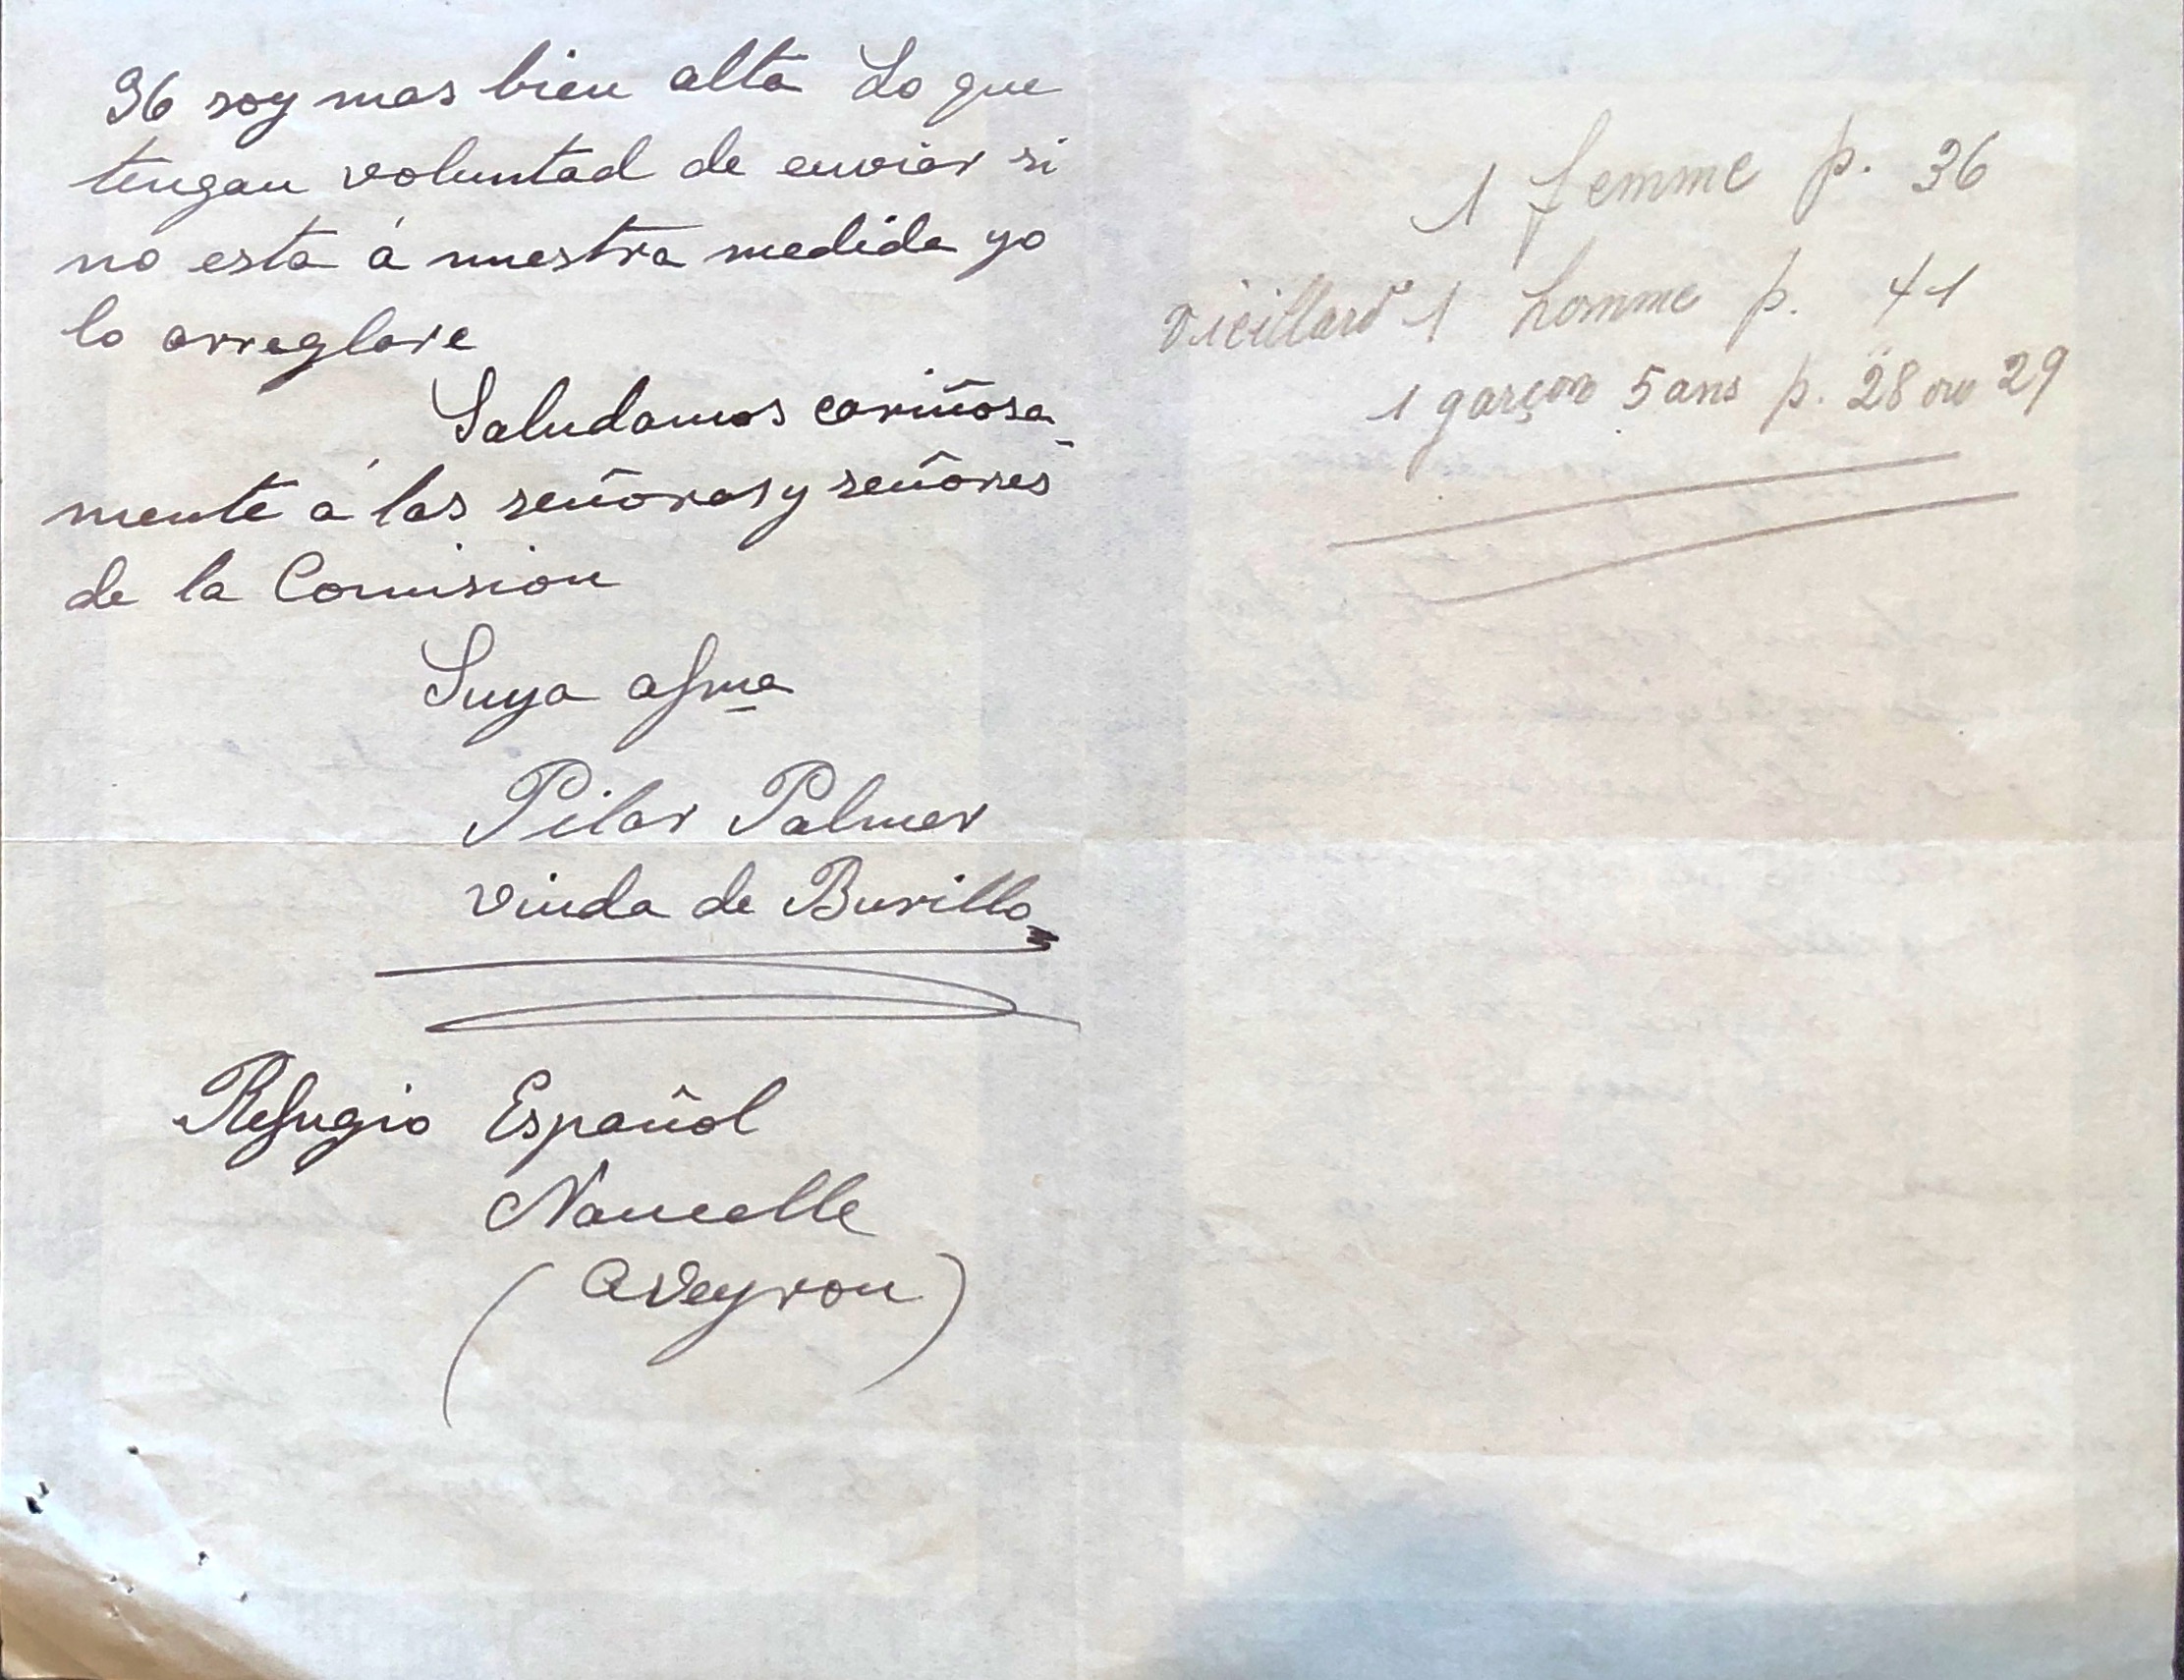 36 soy mas bien alta Lo que
tengan voluntad de enviar si
no esta á nuestra medida yo
lo arreglare
Saludamos cariñosa-
mente á las señoras y señores
de la Comision
Suya afma
Pilar Palmer
viuda de Burillo
Refugio Español
Naucelle
(Aveyron)
1 femme p. 36
vieillard 1 homme p. 41
1 garçon 5 ans p. 28 ou 29